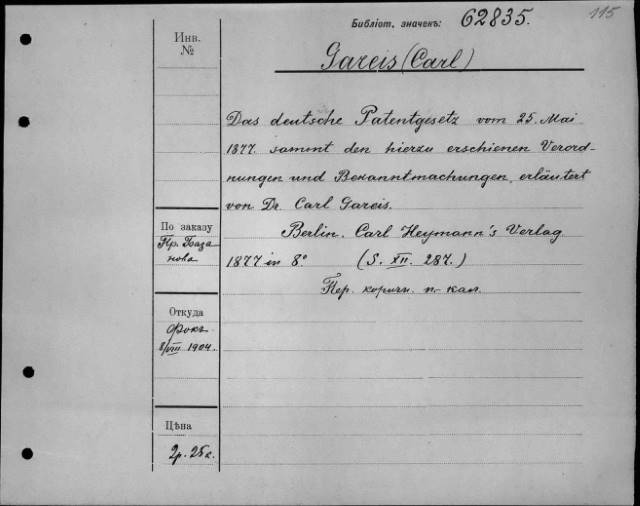 Библіот. значекъ: 62835.
115
Инв. №
Gareis (Carl)
Das deutsche Patentgesetz vom 25. Mai
1877. sammt den hierzu erschienen Verord-
nungen und Bekanntmachungen, erläutert
von Dr. Carl Gareis.
По заказу
Пр. База
нова
Berlin. Carl Heymann's Verlag
1877 in 8° (S. XII. 287.)
Пер. коричн. п. кал.
Откуда
Фокъ
8/VIII 1904.
Цѣна
2р. 25к.